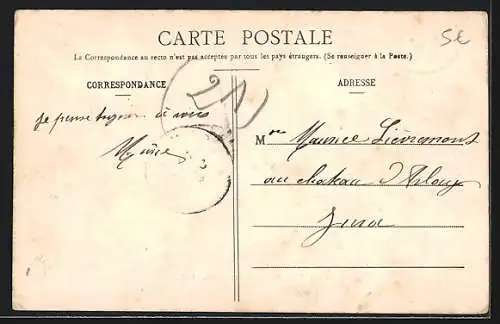 CARTE POSTALE
La Correspondance au recto n'est pas acceptée par tous les pays étrangers. (Se renseigner à la Poste.)
CORRESPONDANCE
ADRESSE
je pense toujours à vous
M
Maurice Lièvremont
au chateau d'Arlay
Jura